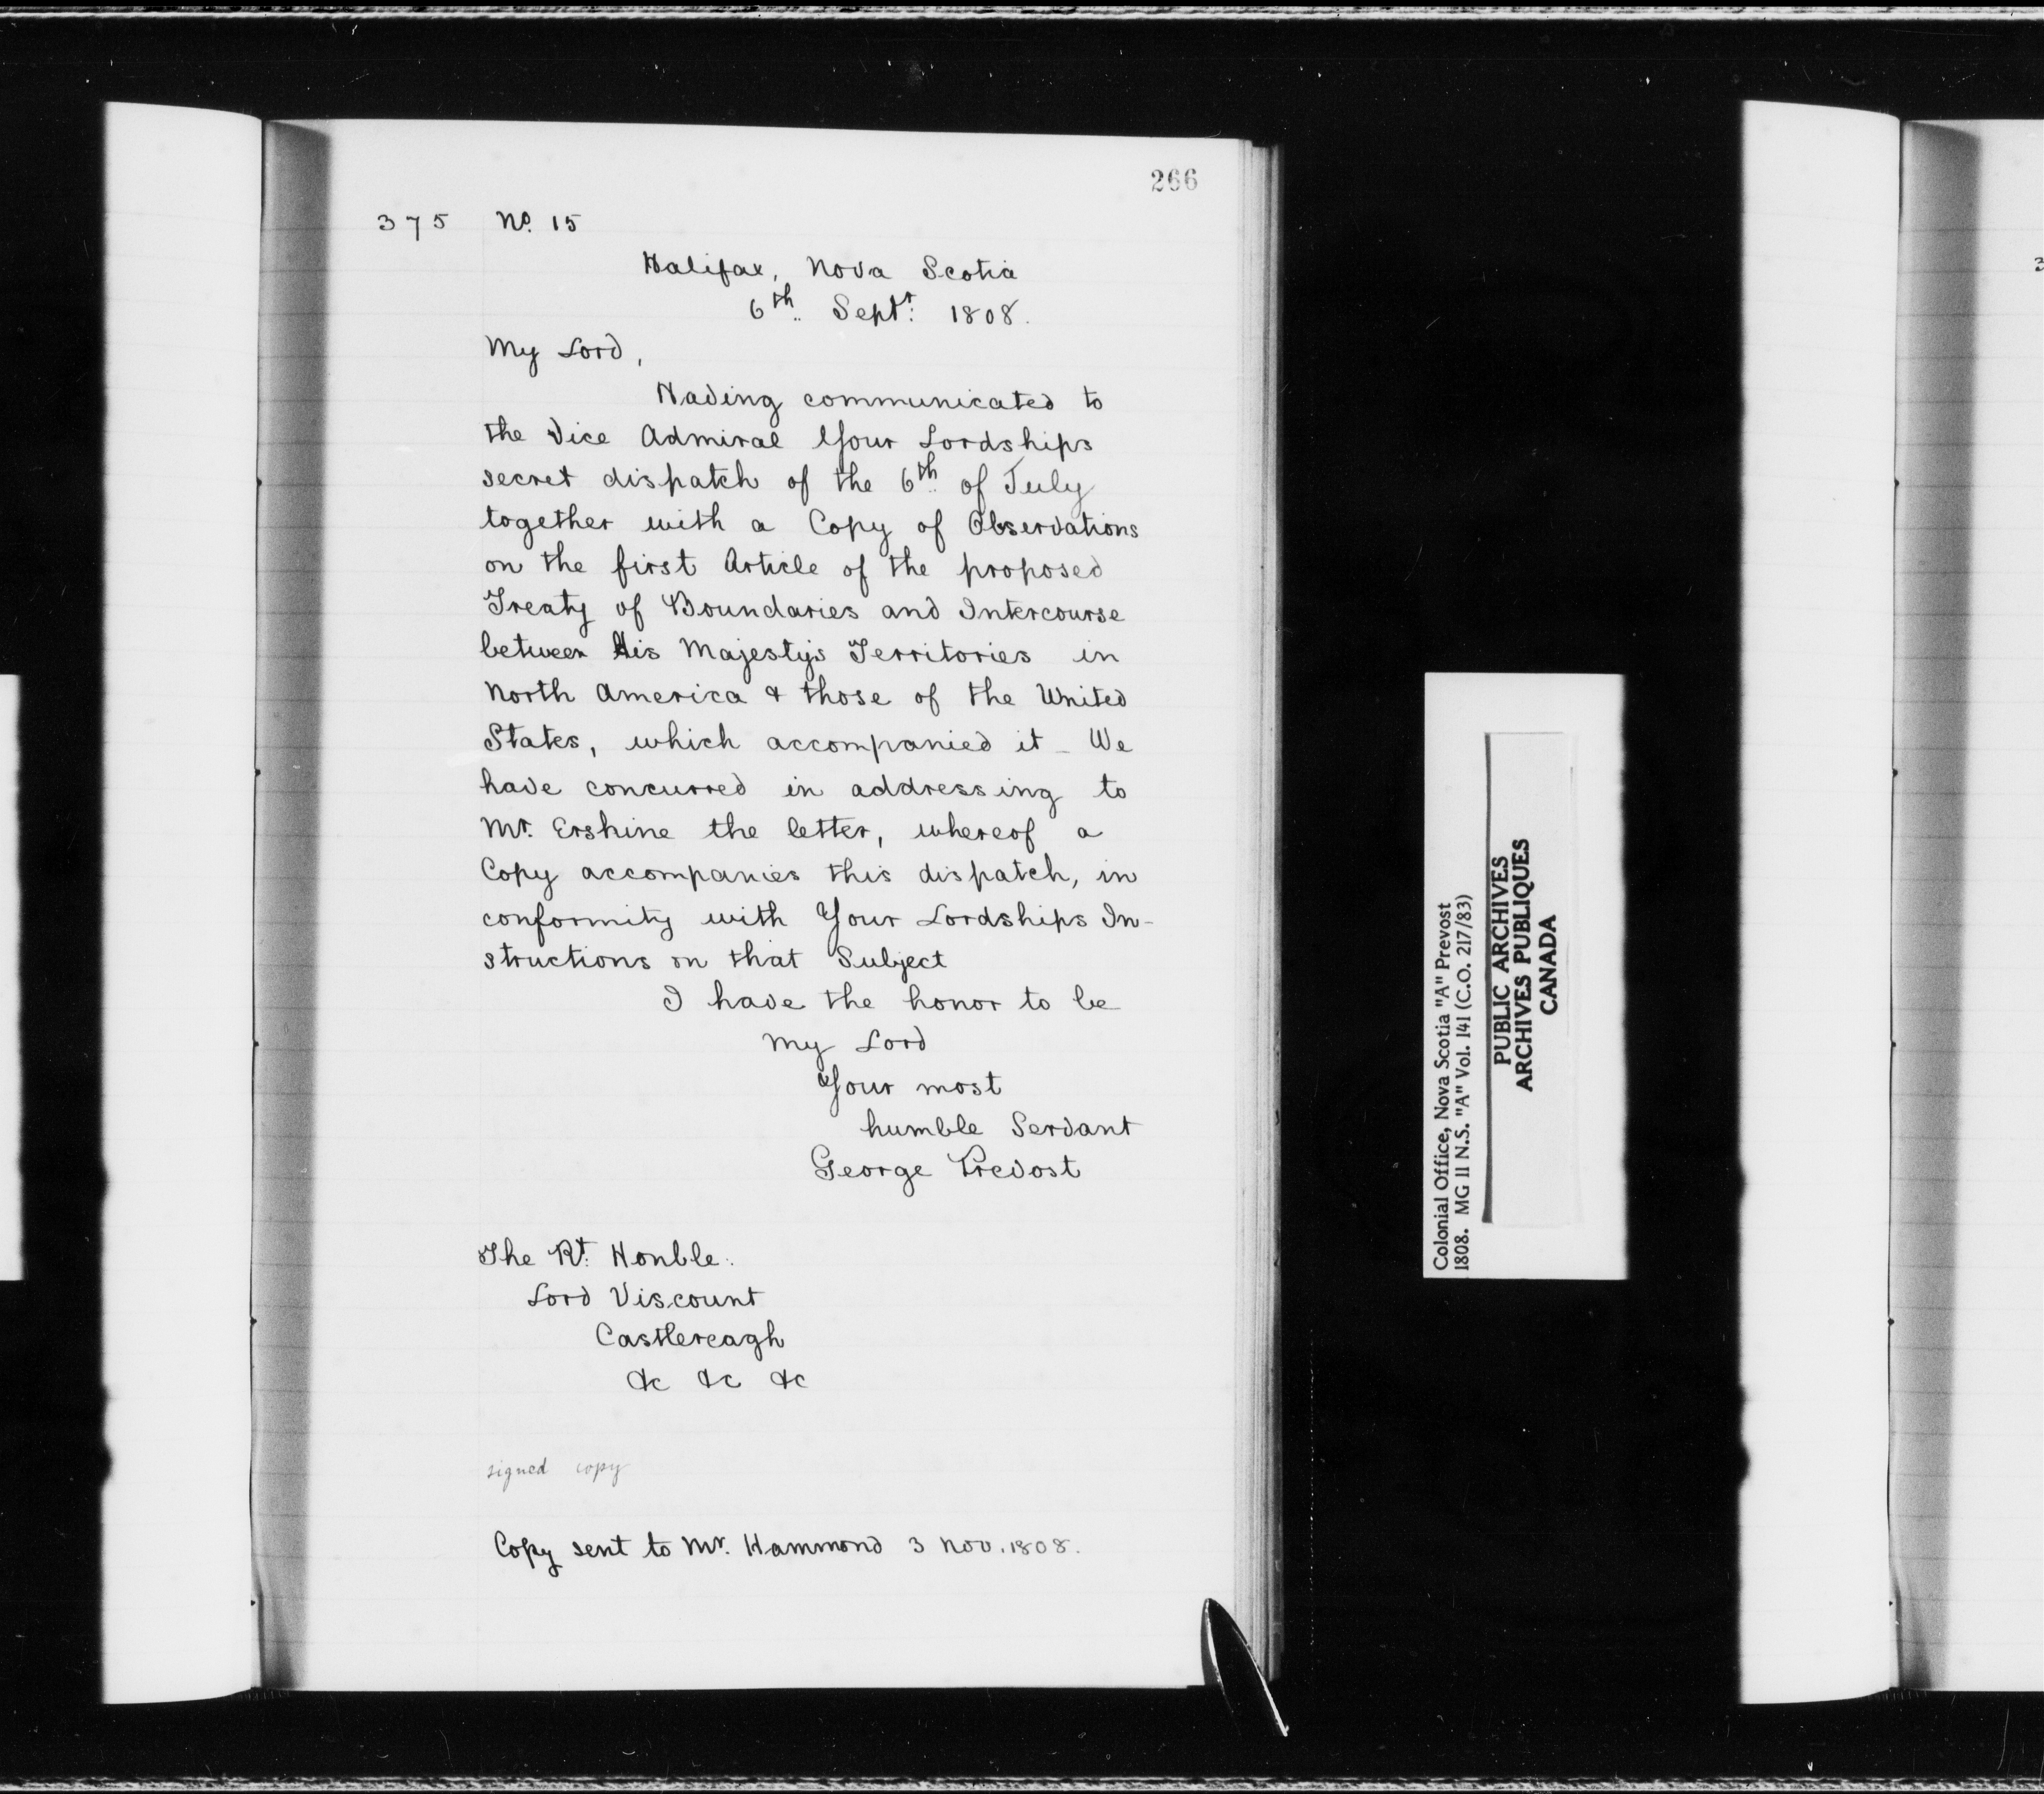 266
375 No. 15
Halifax, Nova Scotia
6th Septr. 1808.
My Lord,
Having communicated to
the Vice Admiral Your Lordships
secret dispatch of the 6th of July
together with a Copy of Observations
on the first Article of the proposed
Treaty of Boundaries and Intercourse
between His Majesty's Territories in
North America & those of the United
States, which accompanied it _ We
have concurred in addressing to
Mr. Erskine the letter, whereof a
Copy accompanies this dispatch, in
conformity with Your Lordships In-
structions on that Subject
I have the honor to be
My Lord
Your most
humble Servant
George Prevost
The Rt. Honble.
Lord Viscount
Castlereagh
&c &c &c
signed copy
Copy sent to Mr. Hammond 3 Nov. 1808.
Colonial Office, Nova Scotia "A" Prevost
1808. MG 11 N.S. "A" Vol. 141 (C.O. 217/83)
PUBLIC ARCHIVES
ARCHIVES PUBLIQUES
CANADA